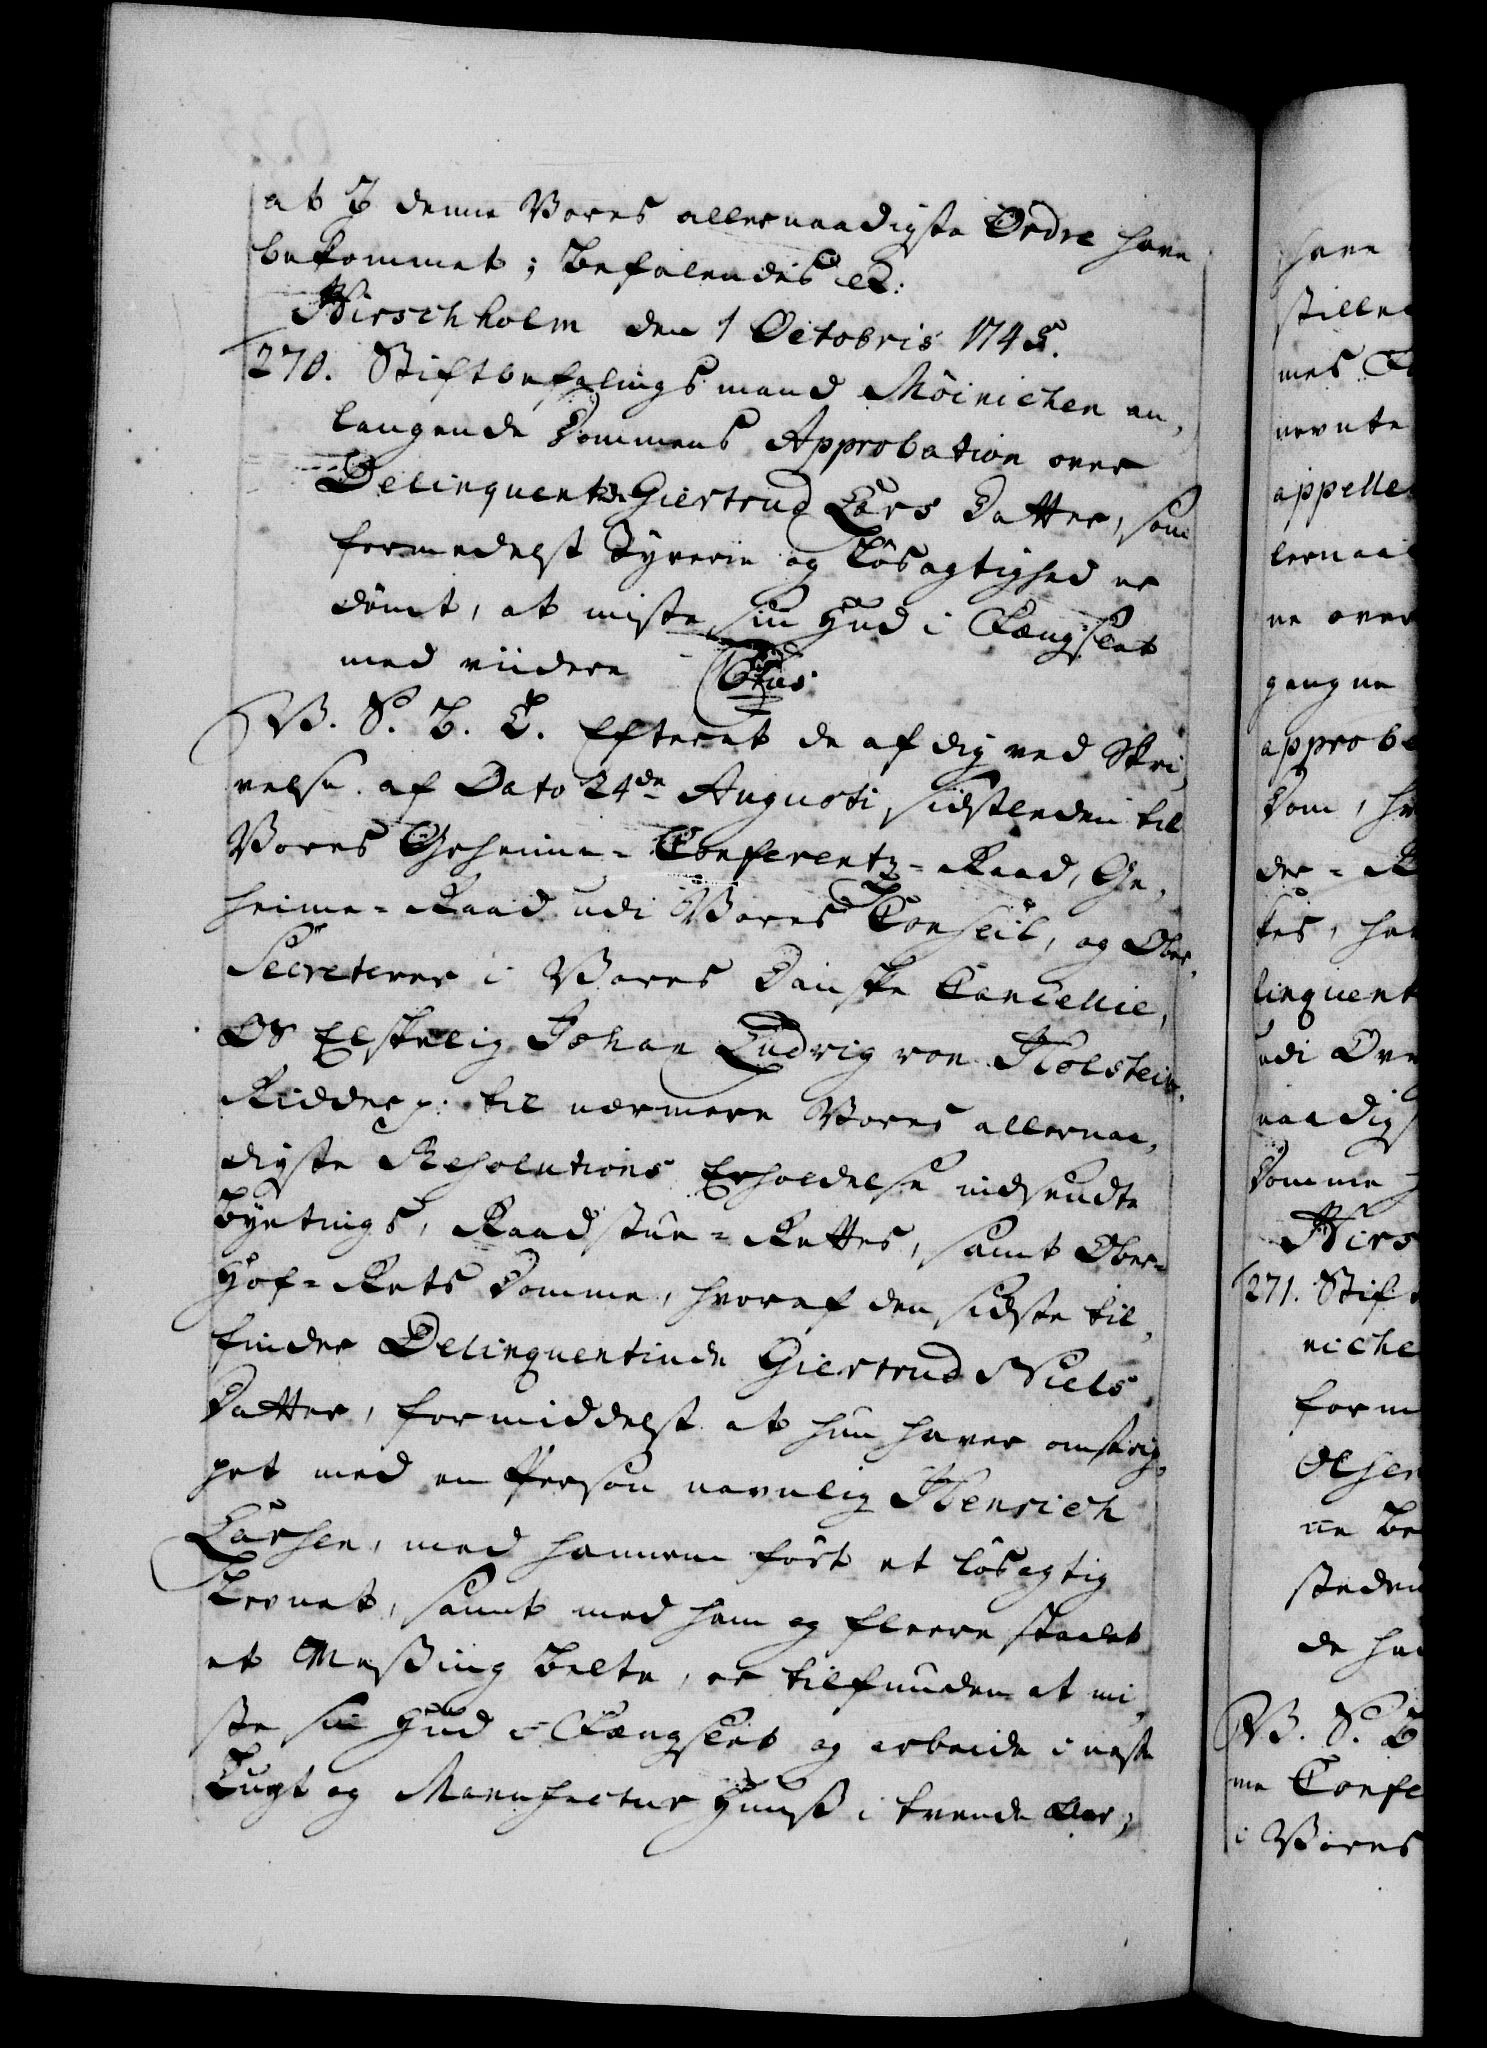 at I denne Vores allernaadigste Ordre have
bekommet; Befalendes etc:
Hirschholm den 1 Octobris 1745.
270. Stiftbefalingsmand Möinichen an,
langende Dommens Approbation over
Delinquentinde Giertrud Lars Datter, som
formedelst Tyverie og Lösagtighed er
dömt, at miste sin Hud i Fængslet
med viidere
V. S. B. T. Eftterat de af dig ved Skri,
velse af Dato 24de Augusti sidstleden til
Vores Geheime-Conferentz-Raad, Ge,
heime-Raad udi Vores Conseil, og Ober,
Secreterer i Vores Danske Cancellie,
Os Elskelig Johan Ludvig von Holstein
Ridder p: til nærmere Vores allernaa,
digste Resolutions Erholdelse indsendte
Byetings, Raadstue-Rettes, samt Ober-
Hof-Rets Domme, hvoraf den sidste til,
finder Delinquentinde Giertrud Niels
Datter, formiddelst at hun haver omstrip,
pet med en Person navnlig Henrich
Larsen, med hannem fört et lösagtig
Levnet, samt med ham og fleere staalet
et Messing Belte, er tilfunden at mi,
ste sin Hud i Fængslet og arbeide i neste
Tugt og Manufactur Huuss i trende Aar;
have
stille
mes
nevnte
appelle
lernaa
ne over
gangne
approbe
Dom, h
der-R
tes, ha
linquent
udi Ove
naadig
Domme
Hirs
271. Stift
niche
form
Olsen
ne Be
steden
de ha
V. S. B
me Confe
i Vores